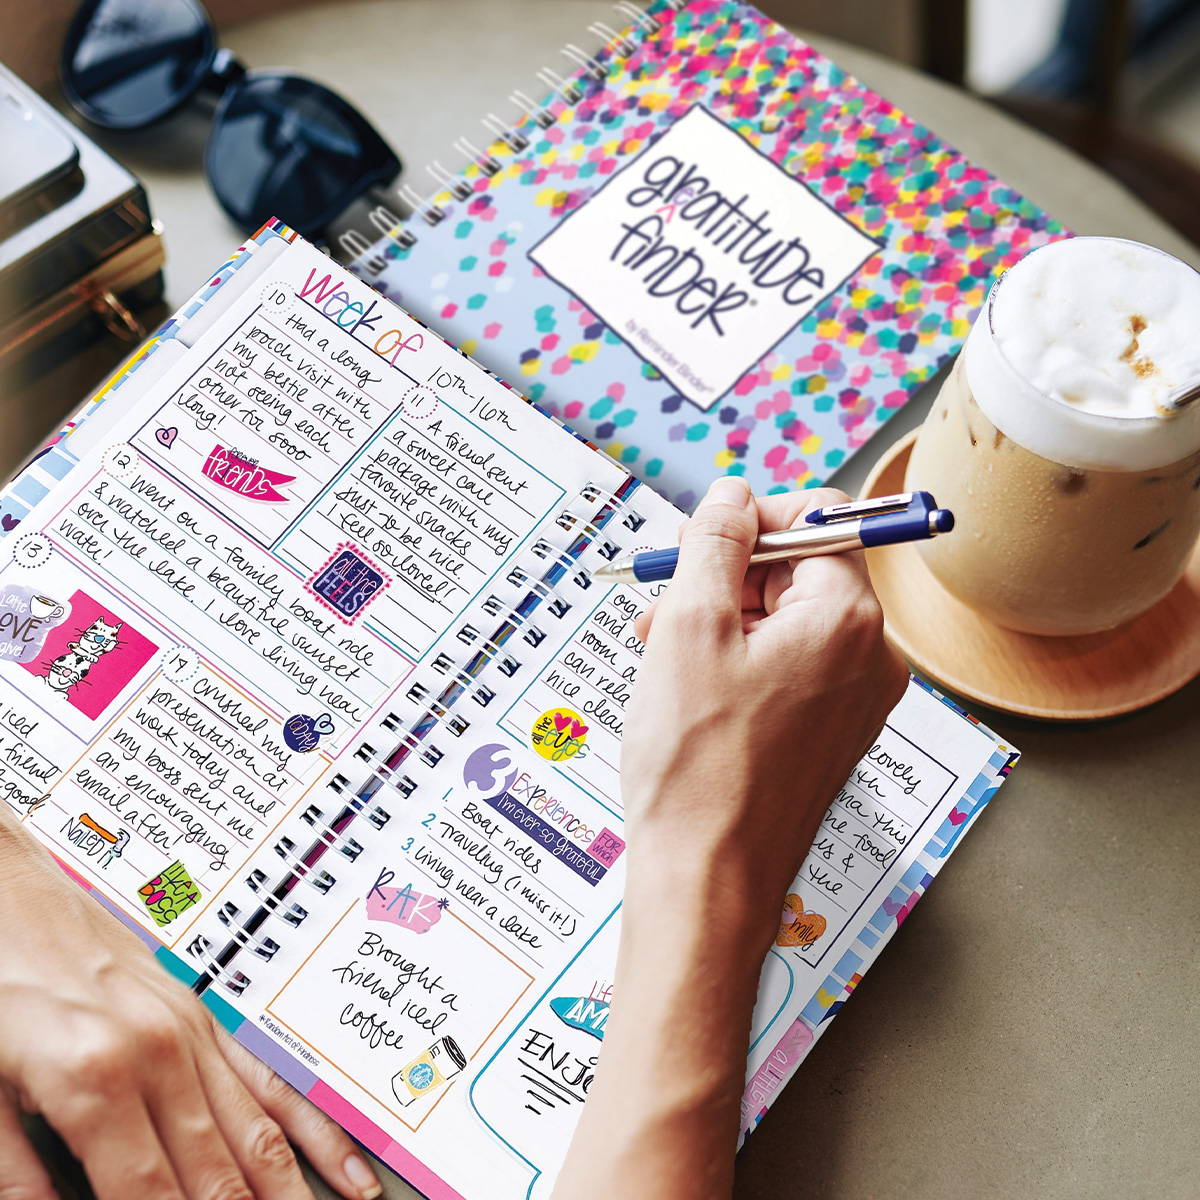 greatitude
finder
by Reminder Binder®
Week of
10th-16th
10
Had a long
porch visit with
my bestie after
not seeing each
other for sooo
long!
forever
friends
11
A friend sent
a sweet care
package with my
favourite snacks
just to be nice.
I feel so loved!
all the
FEELS
12
Went on a family boat ride
& watched a beautiful sunset
over the lake. I love living near
water!
13
Latte
LOVE
give
iced
friend
good
14
Crushed my
presentation at
work today and
my boss sent me
an encouraging
email after!
NAILED IT
like A
BOSS
and
room
can rela
nice clean
all the
eyes
3 Experiences
I'm ever-so-grateful
FOR
which
1. Boat rides
2. Traveling (I miss it!)
3. Living near a lake
R.A.K*
Brought a
friend iced
coffee
*Random Act of Kindness
Life
AM
ENJO
lovely
this
food
&
the
mily
a little